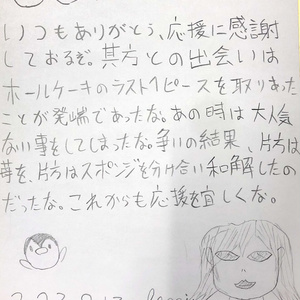 いつもありがとう、応援に感謝
しておるぞ。其方との出会いは
ホールケーキのラスト1ピースを取りあった
ことが発端であったな。あの時は大人気
ない事をしてしまったな。争いの結果、片方は
苺を、片方はスポンジを分け合い和解したの
だったな。これからも応援を宜しくな。